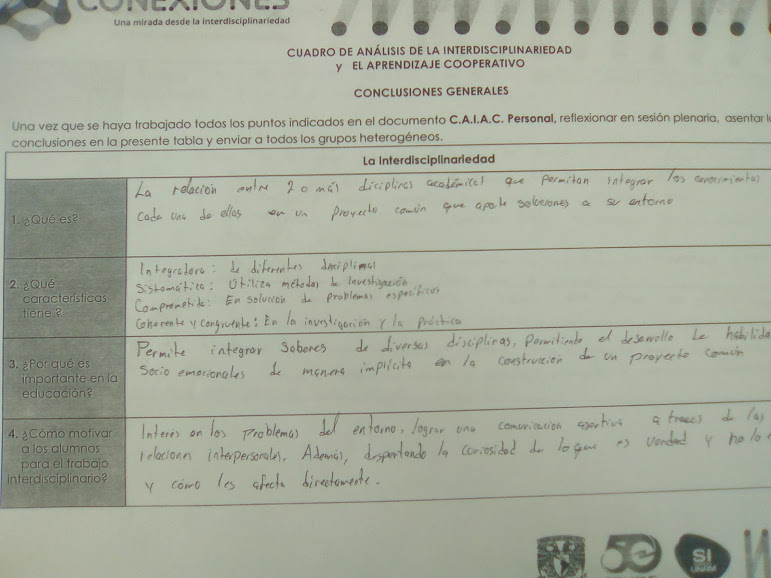 CONEXIONES
Una mirada desde la Interdisciplinariedad
CUADRO DE ANÁLISIS DE LA INTERDISCIPLINARIEDAD
y EL APRENDIZAJE COOPERATIVO
CONCLUSIONES GENERALES
Una vez que se haya trabajado todos los puntos indicados en el documento C.A.I.A.C. Personal, reflexionar en sesión plenaria, asentar
conclusiones en la presente tabla y enviar a todos los grupos heterogéneos.
La Interdisciplinariedad
1. ¿Qué es?
La relación entre 2 o más diciplinas académicas que permitan integrar los conocimientos
Cada una de ellas en un proyecto común que aporte soluciones a su entorno
2. ¿Qué
características
tiene ?
Integradora: de diferentes
Sistemática: Utiliza métodos de investigación
Comprometida: En solución de problemas específicos
Coherente y congruente: En la investigación y la práctica
3. ¿Por qué es
importante en la
educación?
Permite integrar Saberes de diversas disciplinas, permitiendo el desarrollo de
Socio emocionales de manera implícita en la construcción de un proyecto común
4. ¿Cómo motivar
a los alumnos
para el trabajo
interdisciplinario?
Interes en los problemas del entorno, lograr una comunicación asertiva a traves de las
relaciones interpersonales. Además, despertando la curiosidad de lo que es verdad y no lo
y cómo les afecta directamente.
SI
UNAM